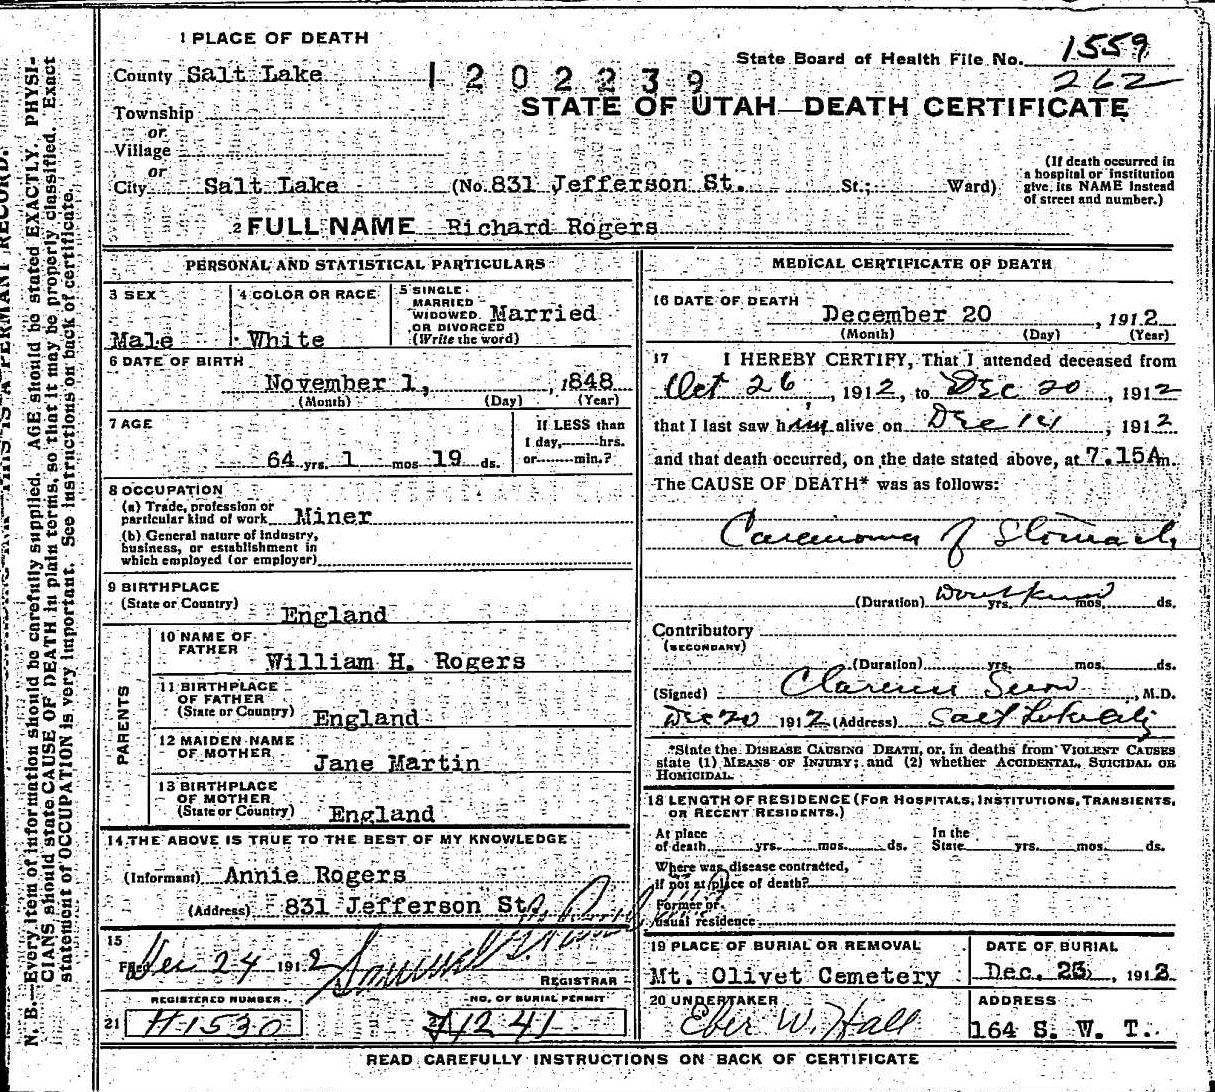 1 PLACE OF DEATH
State Board of Health File No. 1559
262
County Salt Lake 1202239
STATE OF UTAH—DEATH CERTIFICATE
Township
or
Village
or
City Salt Lake (No. 831 Jefferson St. St.; Ward)
(If death occurred in
a hospital or institution
give its NAME instead
of street and number.)
2 FULL NAME Richard Rogers
PERSONAL AND STATISTICAL PARTICULARS
3 SEX
Male
4 COLOR OR RACE
White
5 SINGLE
MARRIED
WIDOWED
OR DIVORCED
(Write the word)
Married
6 DATE OF BIRTH
November 1, , 1848
(Month) (Day) (Year)
7 AGE
64 yrs. 1 mos 19 ds.
If LESS than
1 day, hrs.
or min.?
8 OCCUPATION
(a) Trade, profession or
particular kind of work Miner
(b) General nature of Industry,
business, or establishment in
which employed (or employer)
9 BIRTHPLACE
(State or Country)
England
PARENTS
10 NAME OF
FATHER
William H. Rogers
11 BIRTHPLACE
OF FATHER
(State or Country) England
12 MAIDEN NAME
OF MOTHER
Jane Martin
13 BIRTHPLACE
OF MOTHER
(State or Country) England
14 THE ABOVE IS TRUE TO THE BEST OF MY KNOWLEDGE
(Informant) Annie Rogers
(Address) 831 Jefferson St.
15
Filed Dec 24 1912
REGISTRAR
REGISTERED NUMBER
21 H1530
NO. OF BURIAL PERMIT
1241
MEDICAL CERTIFICATE OF DEATH
16 DATE OF DEATH
December 20 , 1912
(Month) (Day) (Year)
17 I HEREBY CERTIFY, That I attended deceased from
Oct 26, 1912, to Dec 20, 1912
that I last saw him alive on Dec 14, 1912
and that death occurred, on the date stated above, at 7.15A m.
The CAUSE OF DEATH* was as follows:
Carcinoma of Stomach
(Duration) Dont know yrs. mos. ds.
Contributory
(SECONDARY)
(Duration) yrs. mos. ds.
(Signed) Clarence Snow, M.D.
Dec 20 1912 (Address) Salt Lake City
*State the DISEASE CAUSING DEATH, or, in deaths from VIOLENT CAUSES
state (1) MEANS OF INJURY; and (2) whether ACCIDENTAL, SUICIDAL OR
HOMICIDAL.
18 LENGTH OF RESIDENCE (FOR HOSPITALS, INSTITUTIONS, TRANSIENTS,
OR RECENT RESIDENTS.)
At place
of death yrs. mos. ds.
In the
State yrs. mos. ds.
Where was disease contracted,
if not at place of death?
Former or
usual residence
19 PLACE OF BURIAL OR REMOVAL
Mt. Olivet Cemetery
DATE OF BURIAL
Dec. 23, 1912
20 UNDERTAKER
Eber W. Hall
ADDRESS
164 S. W. T.
READ CAREFULLY INSTRUCTIONS ON BACK OF CERTIFICATE
THIS IS A PERMANT RECORD.
N. B.—Every item of information should be carefully supplied. AGE should be stated EXACTLY. PHYSI-
CIANS should state CAUSE OF DEATH in plain terms, so that it may be properly classified. Exact
statement of OCCUPATION is very important. See instructions on back of certificate.